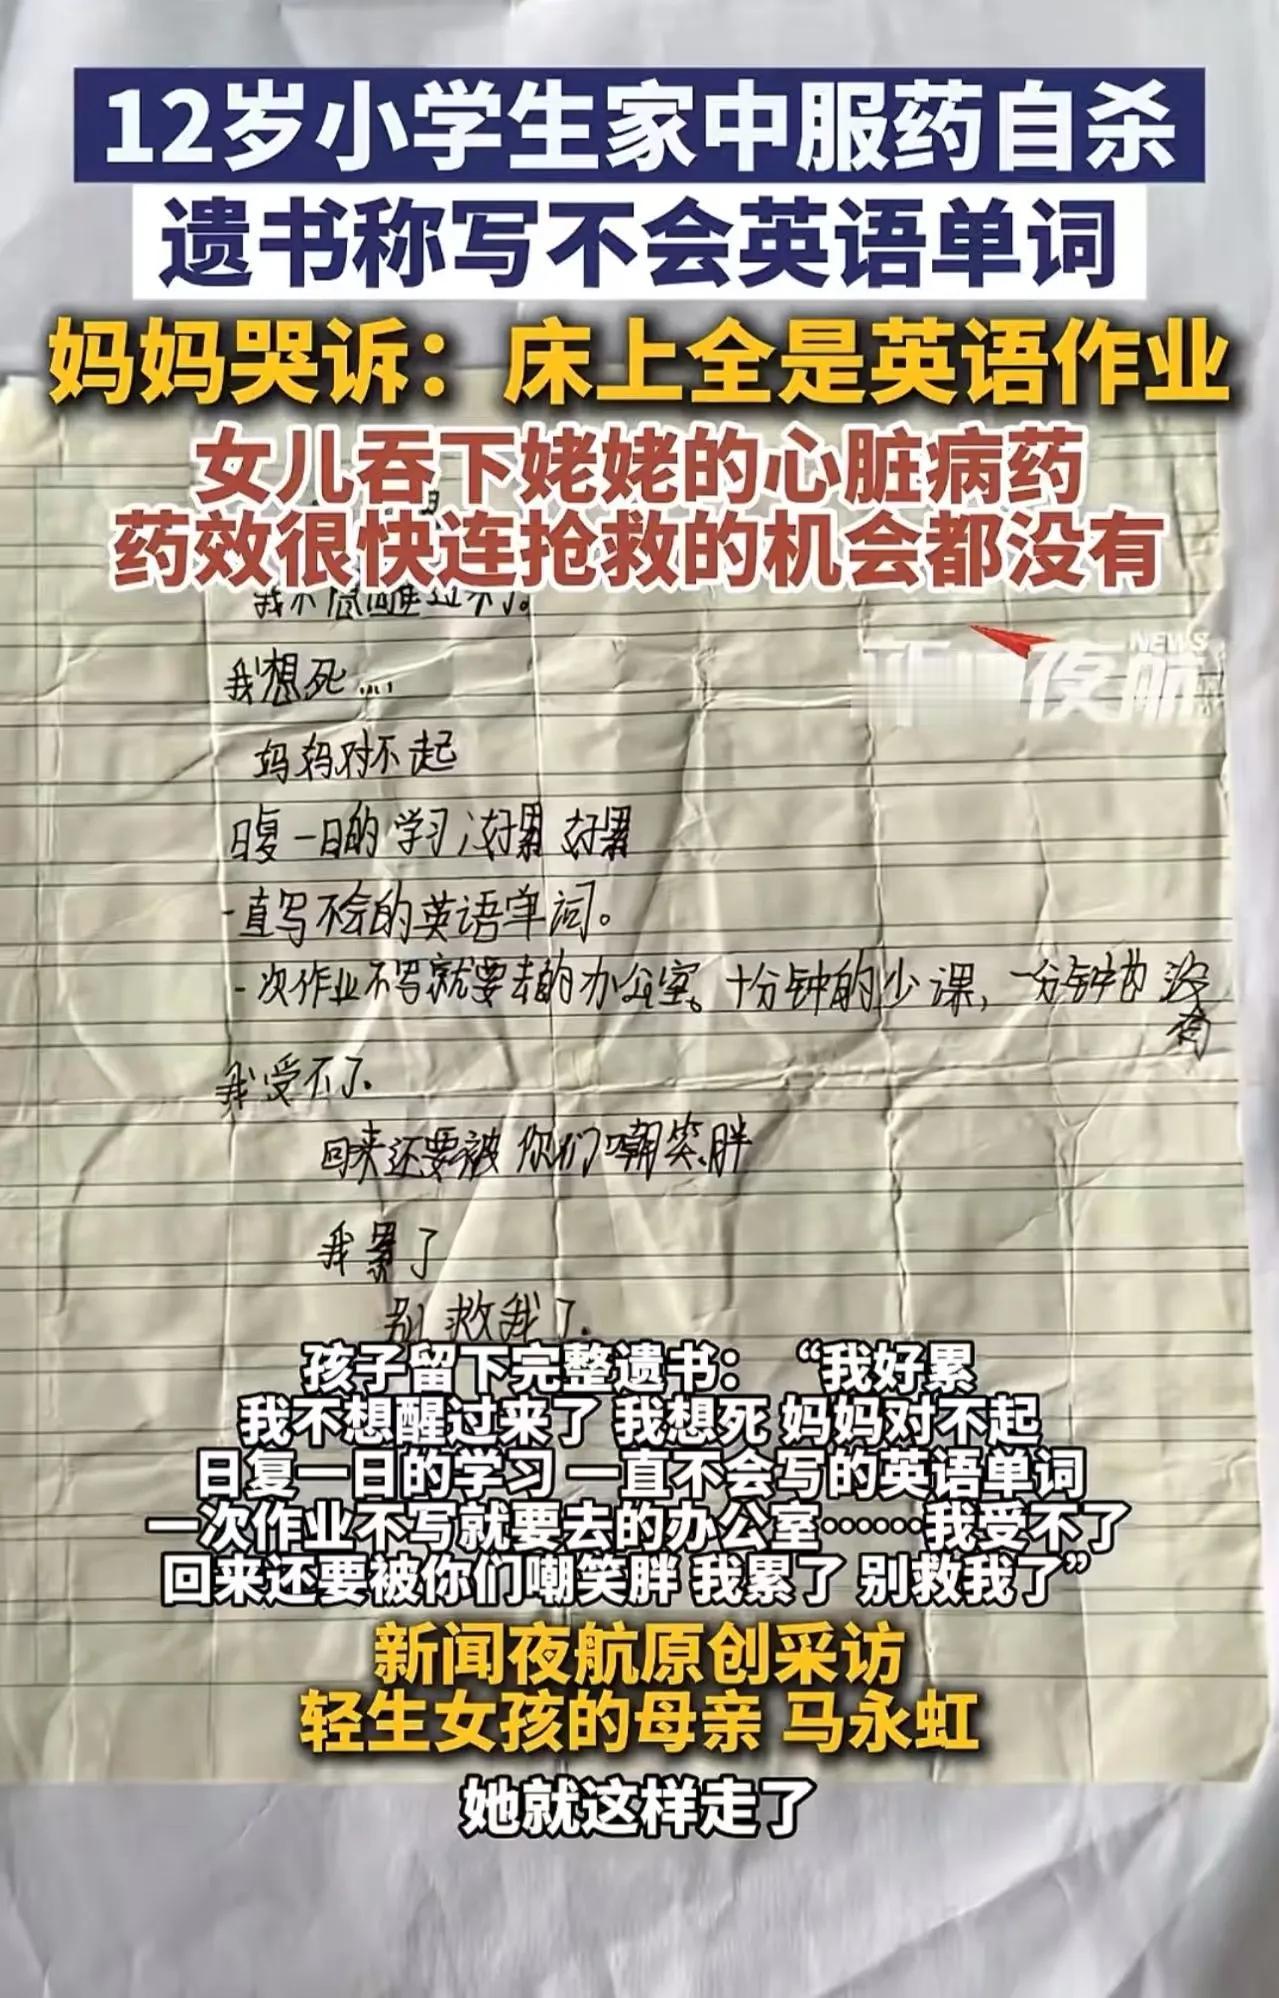 12岁小学生家中服药自杀
遗书称写不会英语单词
妈妈哭诉：床上全是英语作业
女儿吞下姥姥的心脏病药
药效很快连抢救的机会都没有
我不想醒过来了。
NEWS
新闻夜航
我想死....
妈妈对不起
日复一日的学习，好累 好累
一直写不会的英语单词。
一次作业不写就要去的办公室。十分钟的少课，一分钟也没有
我受不了.
回来还要被你们嘲笑胖
我累了
别救我了.
孩子留下完整遗书：“我好累
我不想醒过来了 我想死 妈妈对不起
日复一日的学习 一直不会写的英语单词
一次作业不写就要去的办公室……我受不了
回来还要被你们嘲笑胖 我累了 别救我了”
新闻夜航原创采访
轻生女孩的母亲 马永虹
她就这样走了